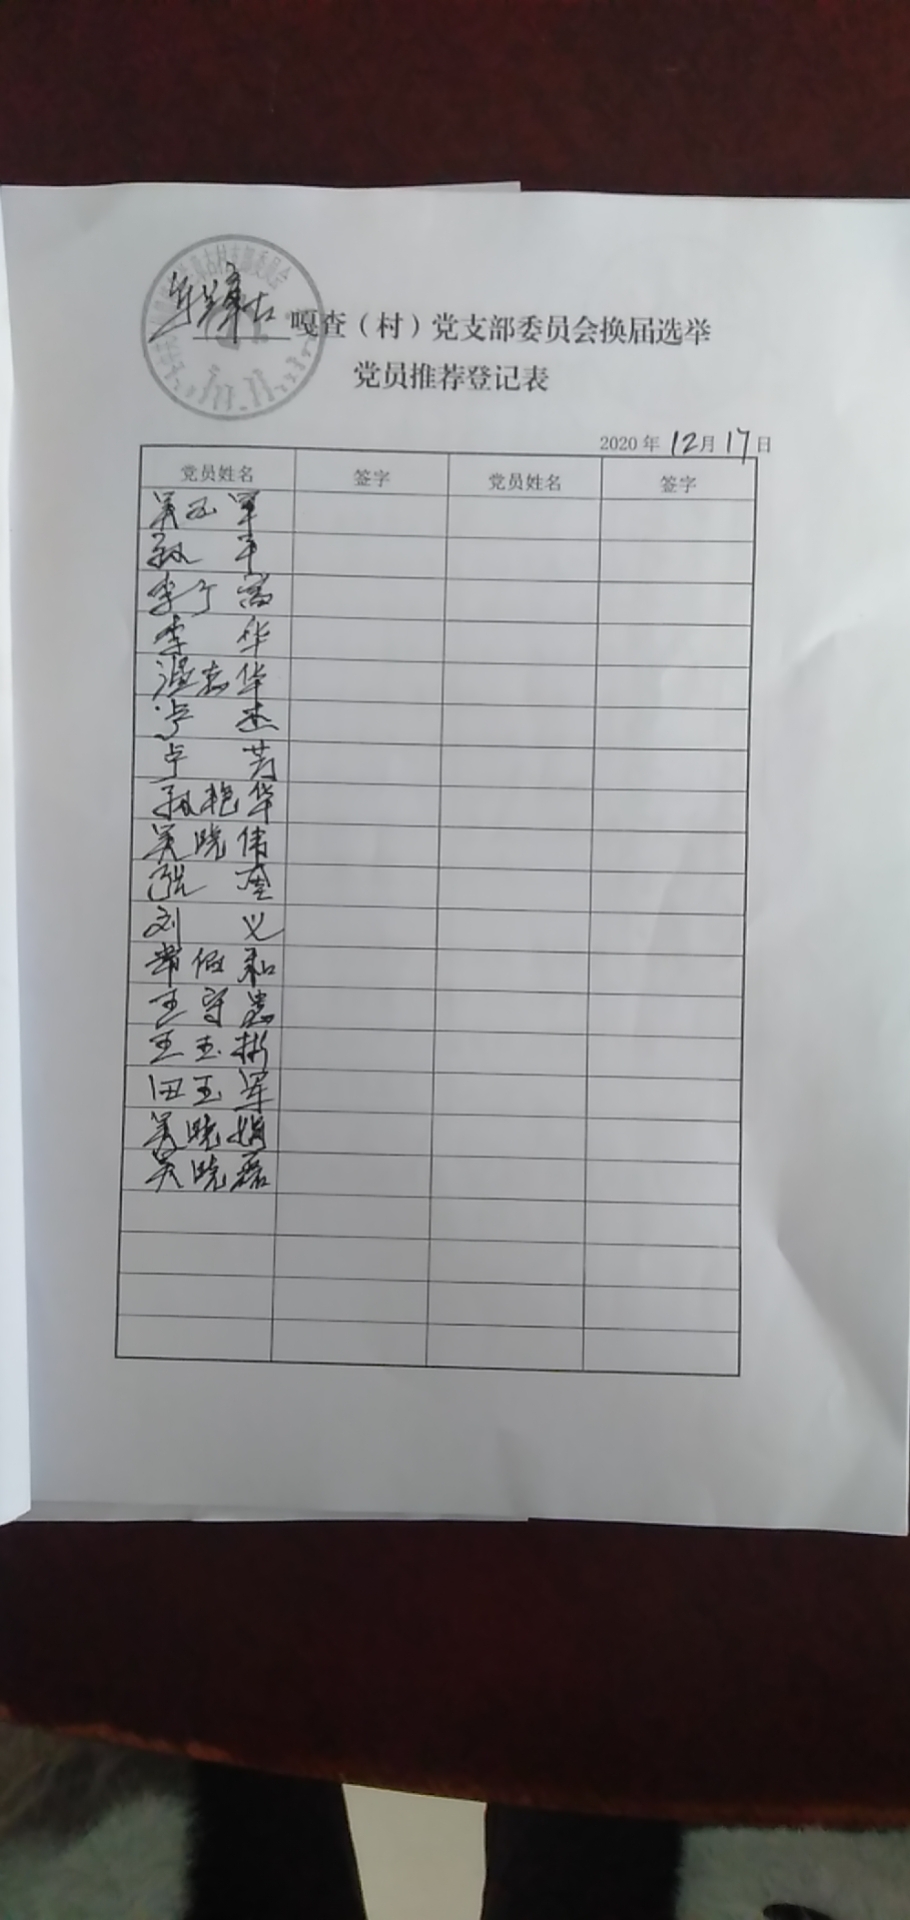 嘎查（村）党支部委员会换届选举
党员推荐登记表
2020 年 12月 17日
党员姓名 签字 党员姓名 签字
吴玉军
孙 平
李 富
李 华
温志华
卢 杰
卢 芳
孙艳华
吴晓伟
张 奎
刘 义
常 和
王守忠
王玉彬
田玉军
吴晓娟
吴晓磊